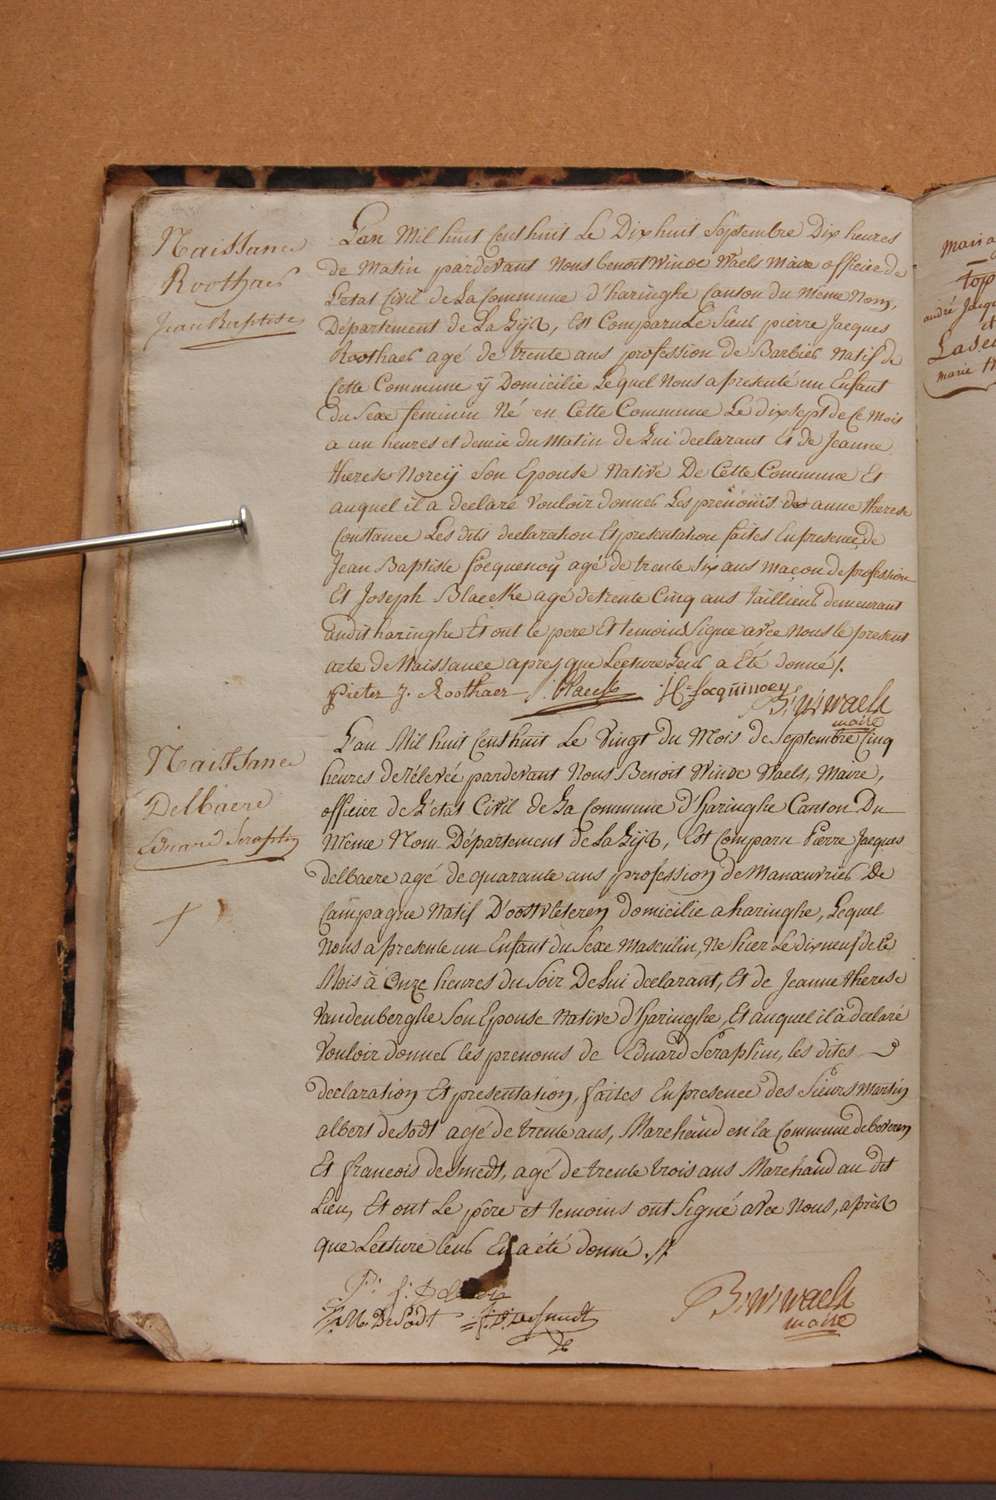 Naissance
Roothaer
Jean Baptiste
L'an Mil huit Cent huit Le Dix huit Septembre Dix heures
de Matin pardevant Nous benoit Winoc Waels Maire officier de
L'etat Civil de La Commune d'haringhe Canton du Meme Nom,
Département de La Lÿs, Est Comparu Le Sieur pierre Jacques
Roothaer agé de trente ans profession de Barbier Natif de
Cette Commune ÿ Domicilie Lequel Nous a presenté un Enfant
du Sexe feminin Né en Cette Commune Le dix sept de Ce Mois
a un heures et demie du Matin de Lui declarant Et de Jeanne
therese Noreÿ Son Epouse Native De Cette Commune Et
auquel il a declaré vouloir donner Les prénoms de anne therese
Constance Les dits declaration Et presentation faites En presence de
Jean Baptiste focquenoÿ agé de trente Six ans maçon de profession
Et Joseph Blaecke agé de trente Cinq ans Taillieur demeurant
audit haringhe Et ont le pere Et temoins Signe avec Nous le present
acte de Naissance apres que Lecture Leur a Eté donné /.
Pieter J. Roothaer J. Blaecke J B focquinoey
B: W: Waels
maire
Naissance
Delbaere
Eduard Seraphin
L'an Mil huit Cent huit Le Vingt du Mois de Septembre Cinq
heures de rélevée pardevant Nous Benoit Winoc Waels, Maire,
officier de L'etat Civil de La Commune d'Haringhe Canton Du
Meme Nom Département de La Lÿs, Est Comparu Pierre Jacques
delbaere agé de quarante ans profession de Manœuvrier De
Campagne Natif D'oostvleteren domicilie a haringhe, Lequel
Nous a presente un Enfant du Sexe Masculin, Ne hier Le dix neuf de Ce
Mois à Onze heures du Soir De Lui declarant, Et de Jeanne therese
Vandenberghe Son Epouse Native d'Haringhe, Et auquel il à declaré
Vouloir donner les prenoms de Eduard Seraphin, les dites
declaration Et presentation, faites En presence des Sieurs Martin
albert de Sodt agé de trente ans, Marchand en la Commune de beveren
Et francois desmedt, agé de trente trois ans Marchand au dit
Lieu, Et ont Le pére et temoins ont Signé avec Nous, après
que Lecture leur En a été donné. //.
P: J: Delbaere
M. De Sodt F: D: desmedt
B: W: Waels
maire
top
et
marie